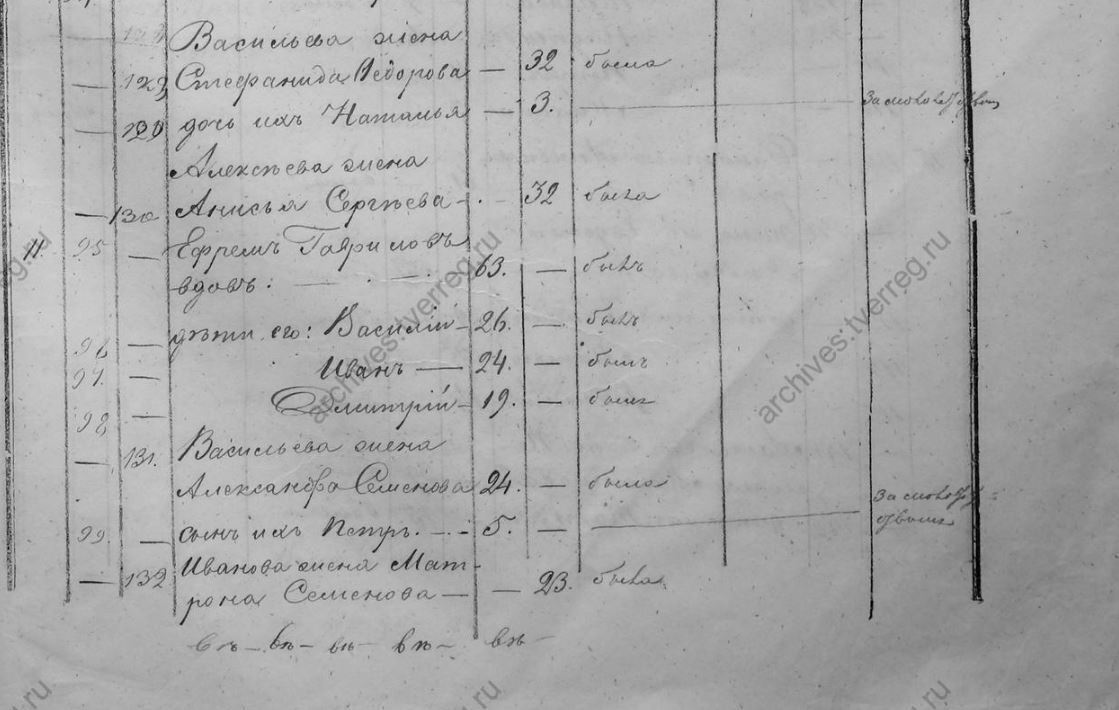 Васильева жена
— 129 Стефанида Ѳедорова — 32 была
— дочь ихъ Наталья — 3. — За молол
Алексѣева жена
— 130 Анисья Сергѣева — 32 была
11. 95 — Ефремъ Гавриловъ
вдовъ: 63. — былъ
96 — дѣти его: Василій — 26. — былъ
97. — Иванъ — 24. — былъ
98 — Дмитрій — 19. — былъ
— 131. Васильева жена
Александра Семенова 24. — была
99. — сынъ ихъ Петръ. — 5. — За молол
— 132 Иванова жена Мат-
рона Семенова — — 23. была
archives.tverreg.ru
archives.tverreg.ru